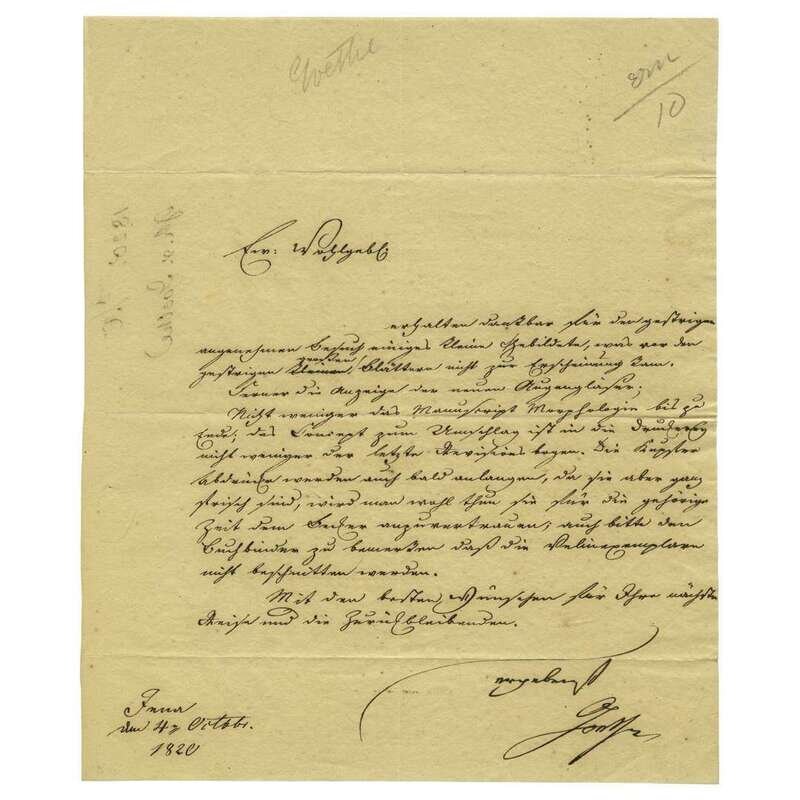 Goethe
10
Ew: Wohlgeb:
erhalten dankbar für den gestrigen
angenehmen Besuch einiges kleine Gebildete, was vor den
gestrigen großen Blättern nicht zur Erscheinung kam.
Ferner die Anzeige der neuen Augengläser;
Nicht weniger das Manuscript Morphologie bis zu
Ende; das Concept zum Umschlag ist in die Druckerey
nicht weniger der letzte Revisionsbogen. Die Kupfer
Abdrücke werden auch bald anlangen, da sie aber ganz
frisch sind, wird man wohl thun sie für die gehörige
Zeit dem anzuvertrauen; auch bitte den
Buchbinder zu bemerken daß die Velinexemplare
nicht beschnitten werden.
Mit den besten Wünschen für Ihre nächste
Reise und die Zurückbleibenden.
ergebenst
Goethe
Jena
den 4 Octbr.
1820